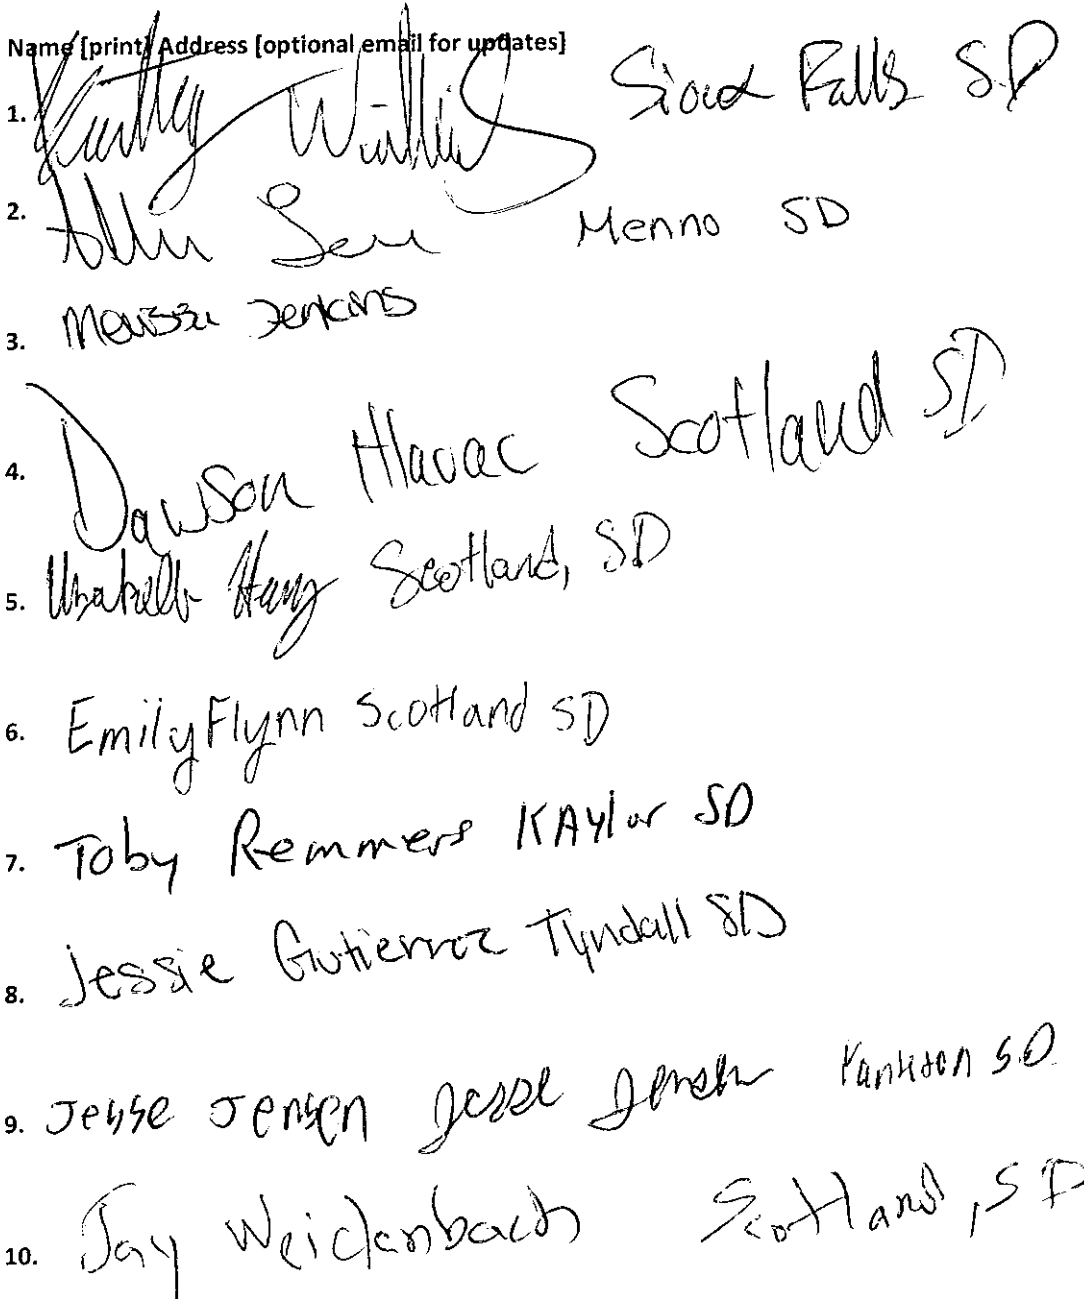 Name [print] Address [optional email for updates]
1. Sioux Falls SD
2. Menno SD
3. Jenkins
4. Dawson Hlavac Scotland SD
5. Scotland, SD
6. Emily Flynn Scotland SD
7. Toby Remmers KAylor SD
8. Jessie Gutierrez Tyndall SD
9. Jesse Jensen Jesse Jensen Yankton S.D.
10. Jay Weidenbach Scotland, SD